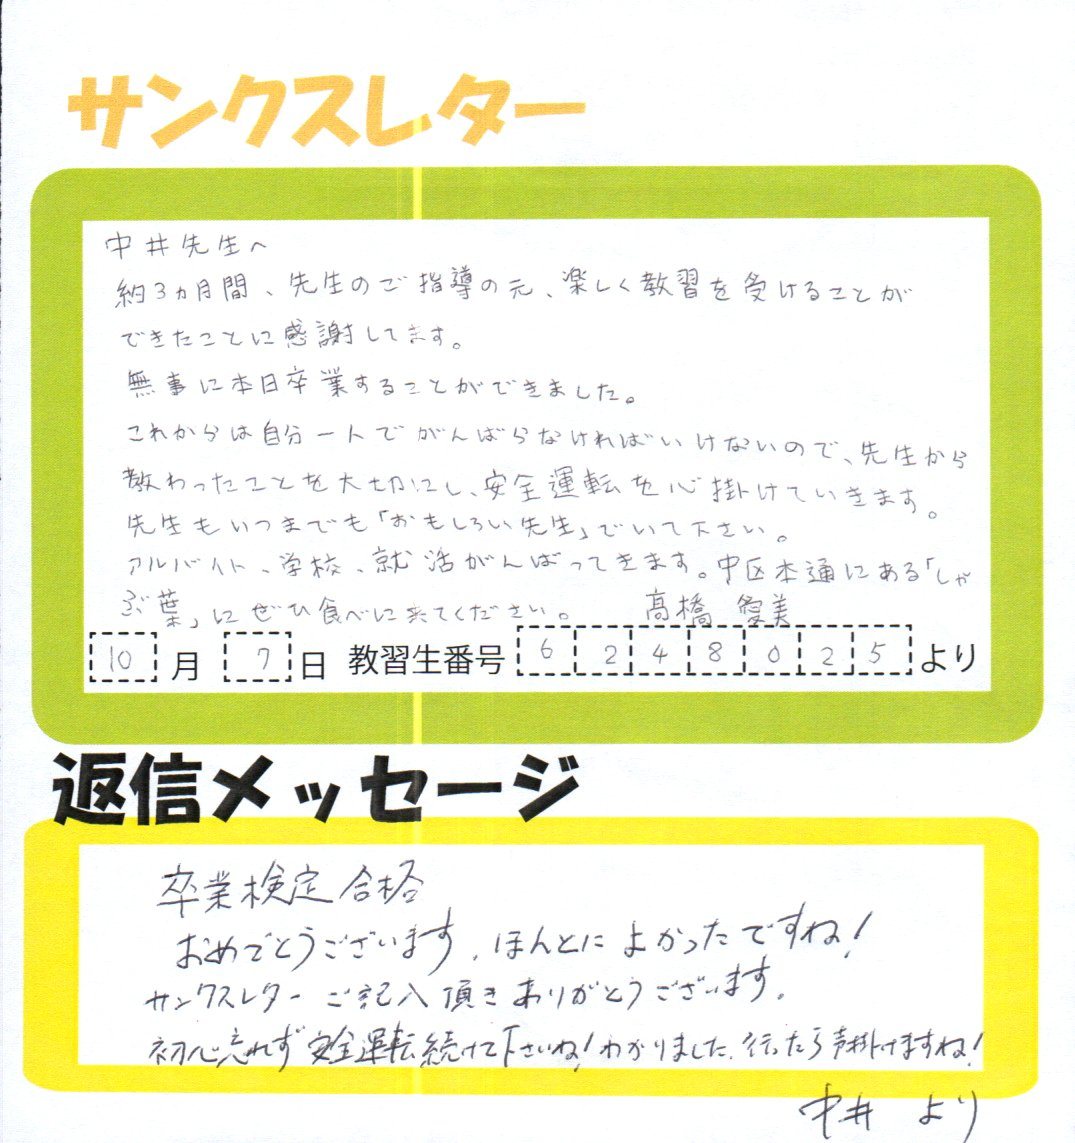 サンクスレター
中井先生へ
約3ヵ月間、先生のご指導の元、楽しく教習を受けることが
できたことに感謝してます。
無事に本日卒業することができました。
これからは自分一人でがんばらなければいけないので、先生から
教わったことを大切にし、安全運転を心掛けていきます。
先生もいつまでも「おもしろい先生」でいて下さい。
アルバイト、学校、就活がんばってきます。中区本通にある「しゃ
ぶ葉」にぜひ食べに来てください。 髙橋 愛美
10月7日 教習生番号 6248025より
返信メッセージ
卒業検定合格
おめでとうございます。ほんとによかったですね!
サンクスレターご記入頂きありがとうございます。
初心忘れず安全運転続けて下さいね!わかりました。行ったら声掛けますね!
中井 より